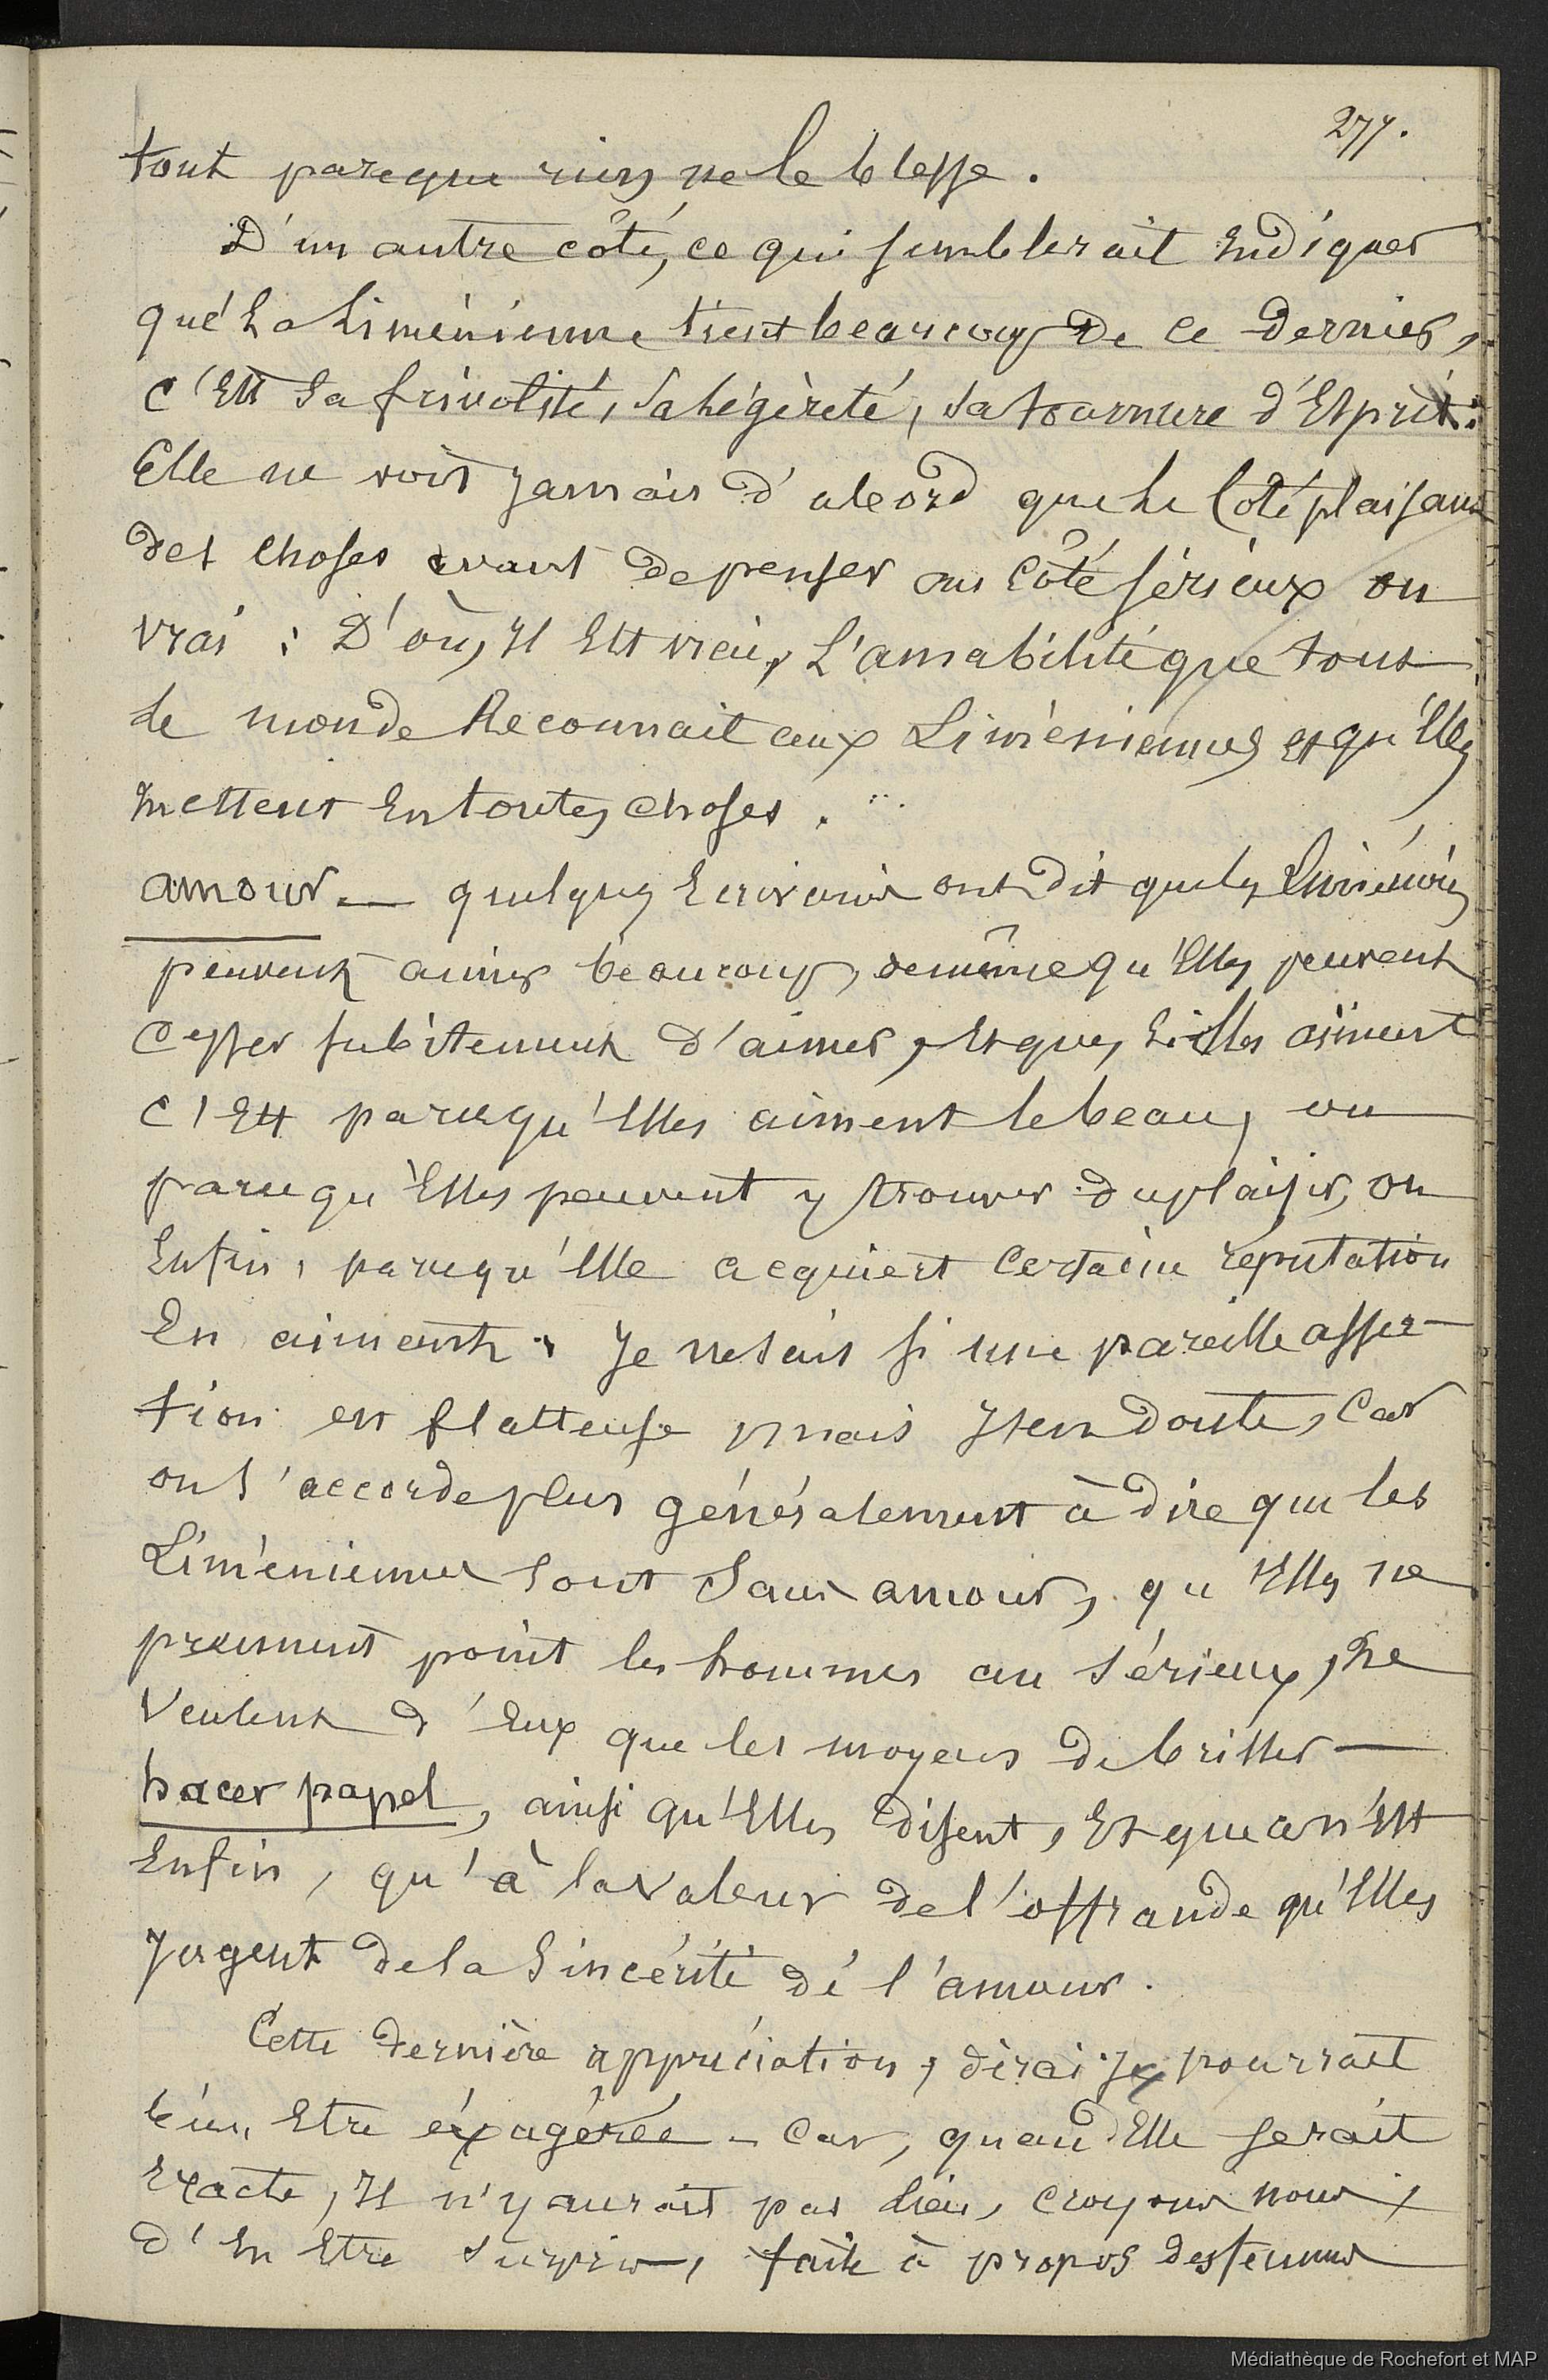 277.
tout parceque rien ne le blesse.
D'un autre côté, ce qui semblerait indiquer
que la Liménienne tient beaucoup de ce dernier,
c'est sa frivolité, sa légèreté, sa tournure d'Esprit:
Elle ne voit jamais d'abord que le Côté plaisant
des choses avant de penser au Côté sérieux ou
vrai : D'où, Il est vrai, L'amabilité que tout
le monde Reconnait aux Liméniennes et qu'Elles
mettent en toutes choses.
amour — quelques Ecrivains ont dit que les Liméniennes
peuvent aimer beaucoup, de même qu'Elles peuvent
cesser subitement d'aimer, et que, si Elles aiment
c'Est parcequ'Elles aiment le beau, ou
parcequ'Elles peuvent y trouver du plaisir, ou
Enfin, parcequ'Elle acquiert Certaine réputation
En aimant. Je ne sais si une pareille asser-
tion est flatteuse mais J'en doute, Car
on s'accorde plus généralement à dire que les
Liméniennes sont sans amour, qu'Elles ne
prennent point les hommes au sérieux, ne
Veulent d'Eux que les moyens de briller —
hacer papel, ainsi qu'Elles disent, Et que ce n'Est
Enfin, qu'à la valeur de l'offrande qu'Elles
Jugent de la Sincérité de l'amour.
Cette dernière appréciation, dirai Je, pourrait
bien Etre éxagérée - Car, quand Elle serait
Exacte, Il n'y aurait pas lieu, croyons nous,
d'En Etre surpris, faite à propos des femmes
Médiathèque de Rochefort et MAP